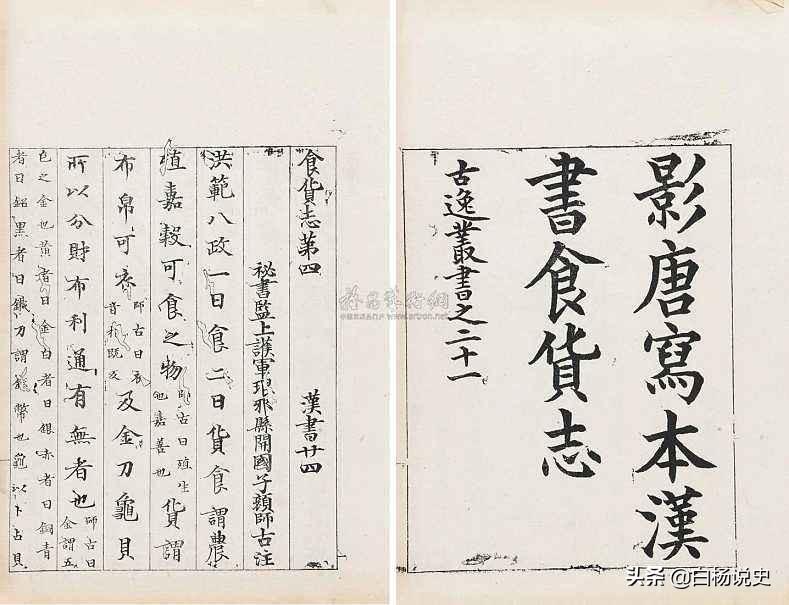 影唐寫本漢
書食貨志
古逸叢書之二十一
食貨志第四 漢書廿四
秘書監上護軍琅邪縣開國子顏師古注
洪範八政一曰食二曰貨食謂農
殖嘉穀可食之物師古曰殖生也嘉善也貨謂
布帛可衣師古曰衣音於既反及金刀龜貝
所以分財布利通有無者也師古曰金謂五
色之金也黃者曰金白者曰銀赤者曰銅青
者曰鉛黑者曰鐵刀謂錢幣也龜以卜占貝
www.artron.net
头条 @白杨说史